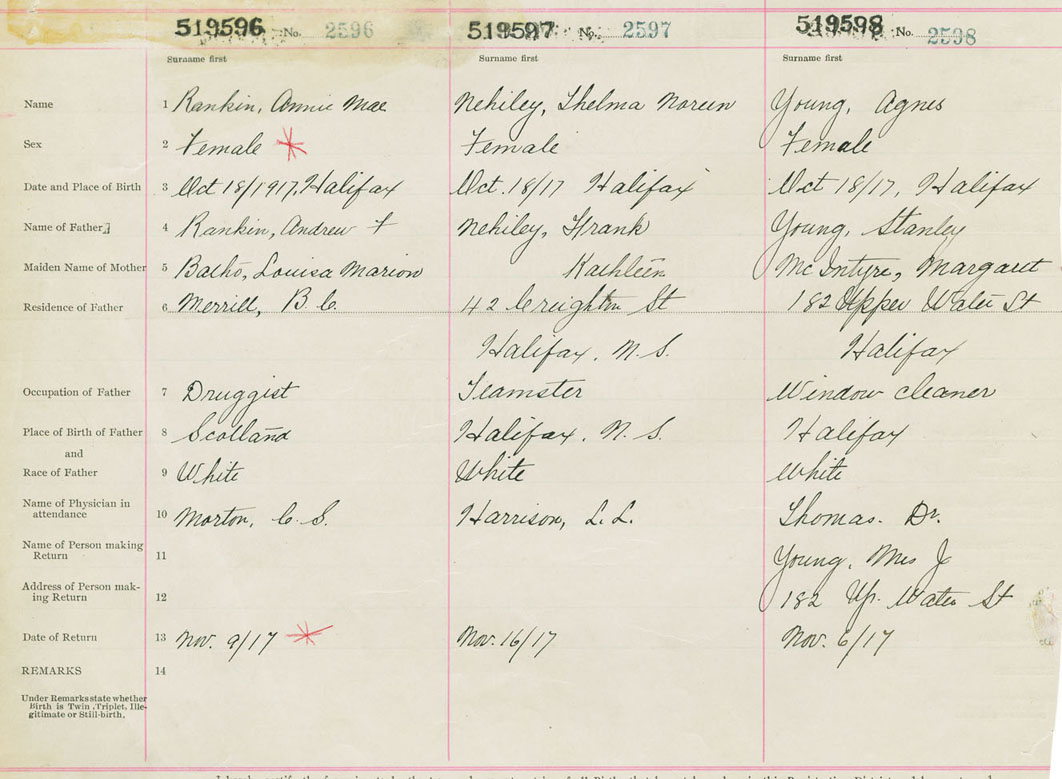 519596 No. 2596 519597 No. 2597 519598 No. 2598
Surname first Surname first Surname first
Name 1 Rankin, Annie Mae Nehiley, Thelma Noreen Young, Agnes
Sex 2 Female Female Female
Date and Place of Birth 3 Oct 18/1917, Halifax Oct. 18/17 Halifax Oct 18/17, Halifax
Name of Father 4 Rankin, Andrew F Nehiley, Frank Young, Stanley
Maiden Name of Mother 5 Louisa Marion Kathleen McIntyre, Margaret
Residence of Father 6 Merrill, B.C. 42 Creighton St 182 Upper Water St
Halifax, N.S. Halifax
Occupation of Father 7 Druggist Teamster Window cleaner
Place of Birth of Father 8 Scotland Halifax, N.S. Halifax
and
Race of Father 9 White White White
Name of Physician in
attendance 10 Morton, C.S. Harrison, L.L. Thomas. Dr.
Name of Person making
Return 11 Young, Mrs J
Address of Person mak-
ing Return 12 182 Up. Water St
Date of Return 13 Nov. 9/17 Nov. 16/17 Nov. 6/17
REMARKS 14
Under Remarks state whether
Birth is Twin, Triplet, Ille-
gitimate or Still-birth.